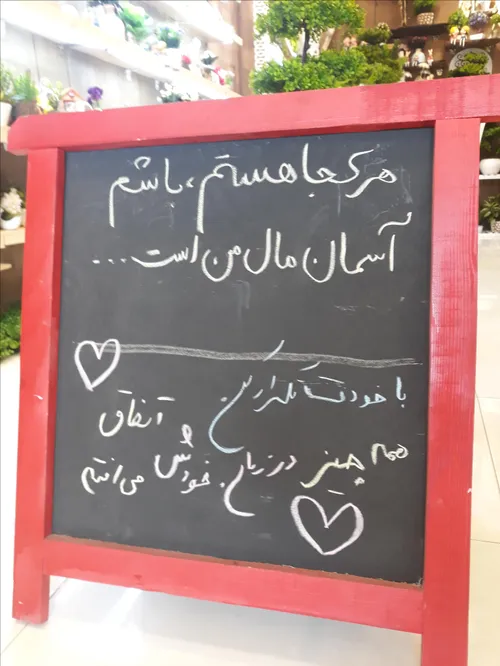 هر کجا هستم، باشم
آسمان مال من است...
با خودت تکرار کن
همه چیز در زمان خودش اتفاق می افتد